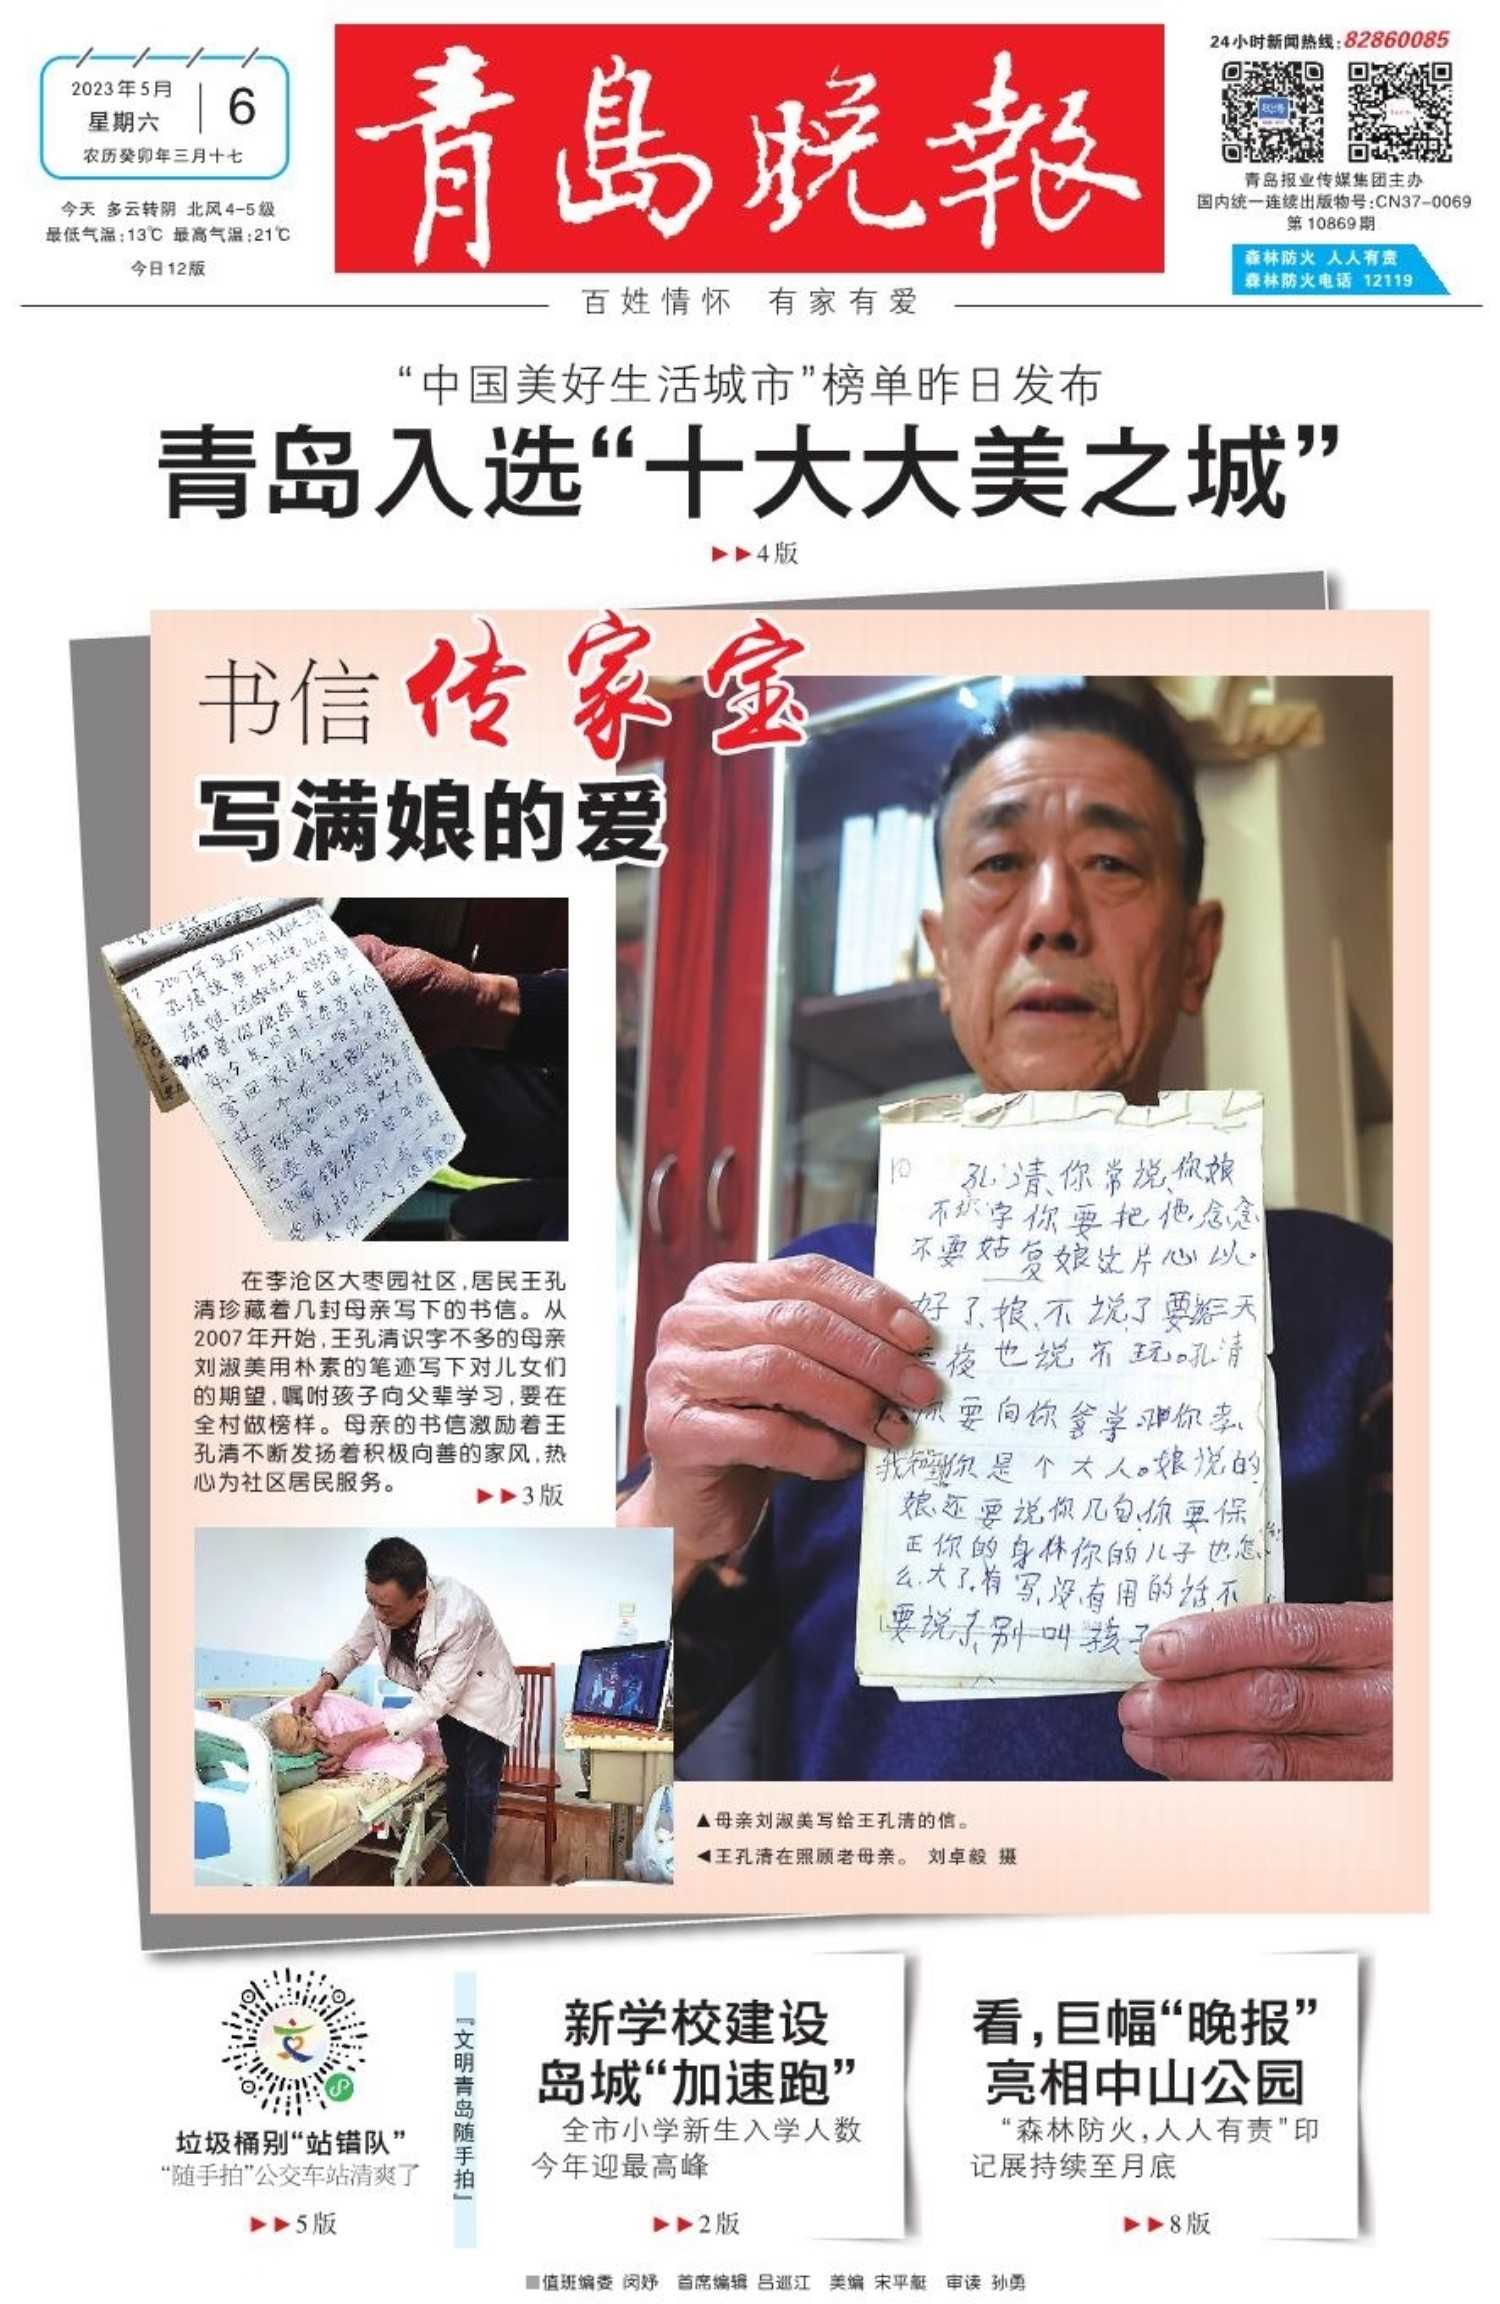 2023年5月
星期六
6
农历癸卯年三月十七
今天 多云转阴 北风4-5级
最低气温:13℃ 最高气温:21℃
今日12版
青岛晚報
24小时新闻热线:82860085
青岛报业传媒集团主办
国内统一连续出版物号:CN37-0069
第10869期
森林防火 人人有责
森林防火电话 12119
百姓情怀 有家有爱
“中国美好生活城市”榜单昨日发布
青岛入选“十大大美之城”
▶▶4版
书信传家宝
写满娘的爱
在李沧区大枣园社区,居民王孔
清珍藏着几封母亲写下的书信。从
2007年开始,王孔清识字不多的母亲
刘淑美用朴素的笔迹写下对儿女们
的期望,嘱咐孩子向父辈学习,要在
全村做榜样。母亲的书信激励着王
孔清不断发扬着积极向善的家风,热
心为社区居民服务。
▶▶3版
10
孔清、你常说、你娘
不识字你要把他念念
不要姑复娘这片心以。
好了、娘、不说了要说三天
三夜也说不玩。孔清
你要向你爹学
你是个大人。娘说的
娘还要说你几句、你要保
正你的身体你的儿子也怎
么大了、有写没有用的话、不
要说了、别叫孩子
▲母亲刘淑美写给王孔清的信。
◀王孔清在照顾老母亲。 刘卓毅 摄
垃圾桶别“站错队”
“随手拍”公交车站清爽了
▶▶5版
『文明青岛随手拍』
新学校建设
岛城“加速跑”
全市小学新生入学人数
今年迎最高峰
▶▶2版
看,巨幅“晚报”
亮相中山公园
“森林防火,人人有责”印
记展持续至月底
▶▶8版
■值班编委 闵妤 首席编辑 吕巡江 美编 宋平艇 审读 孙勇